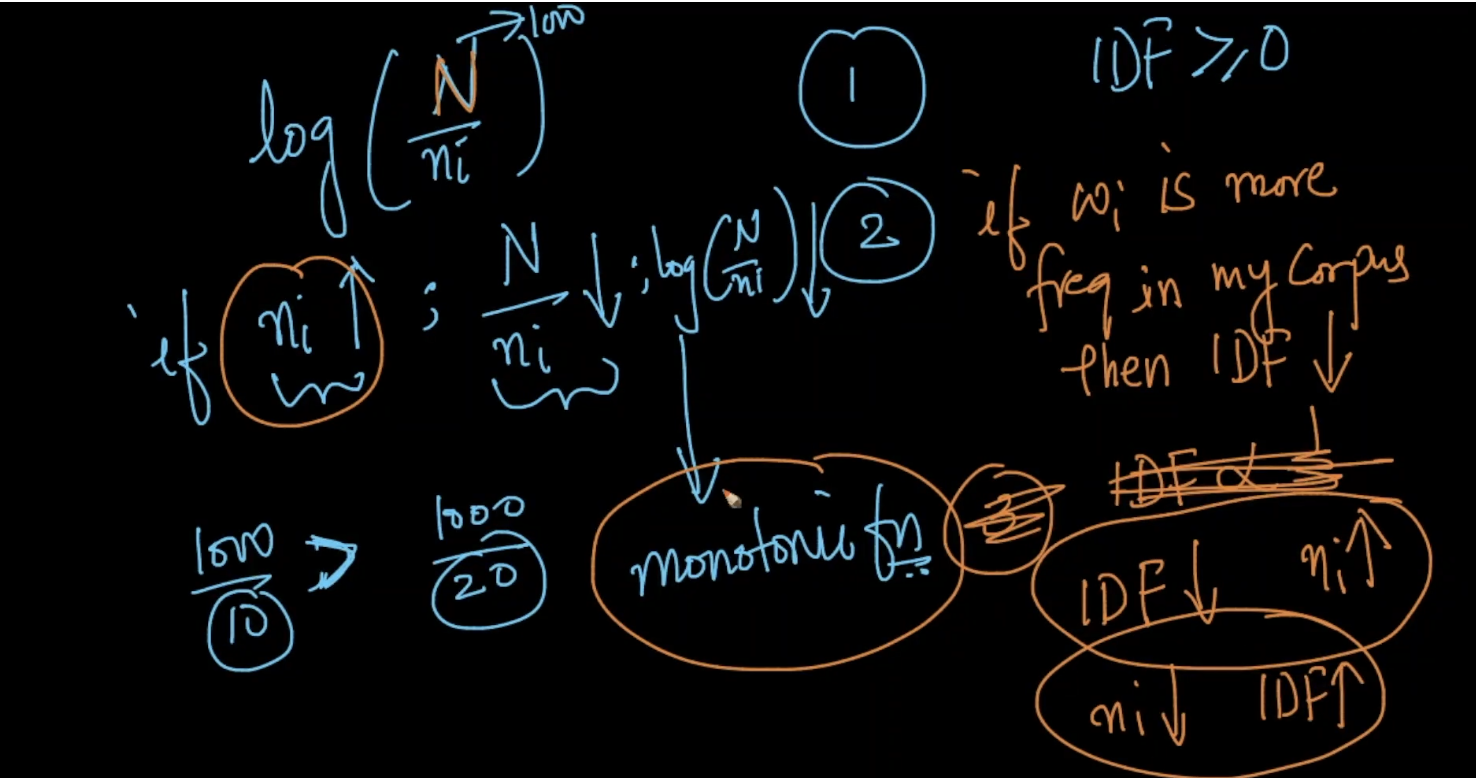 log(N/ni) → 1000
1
IDF ≥ 0
if ni ↑ ; N/ni ↓ ; log(N/ni) ↓ 2
if wi is more
freq in my corpus
then IDF ↓
1000/10 > 1000/20
monotonic fn
3
IDF ∝ 1
IDF ↓ ni ↑
ni ↓ IDF ↑